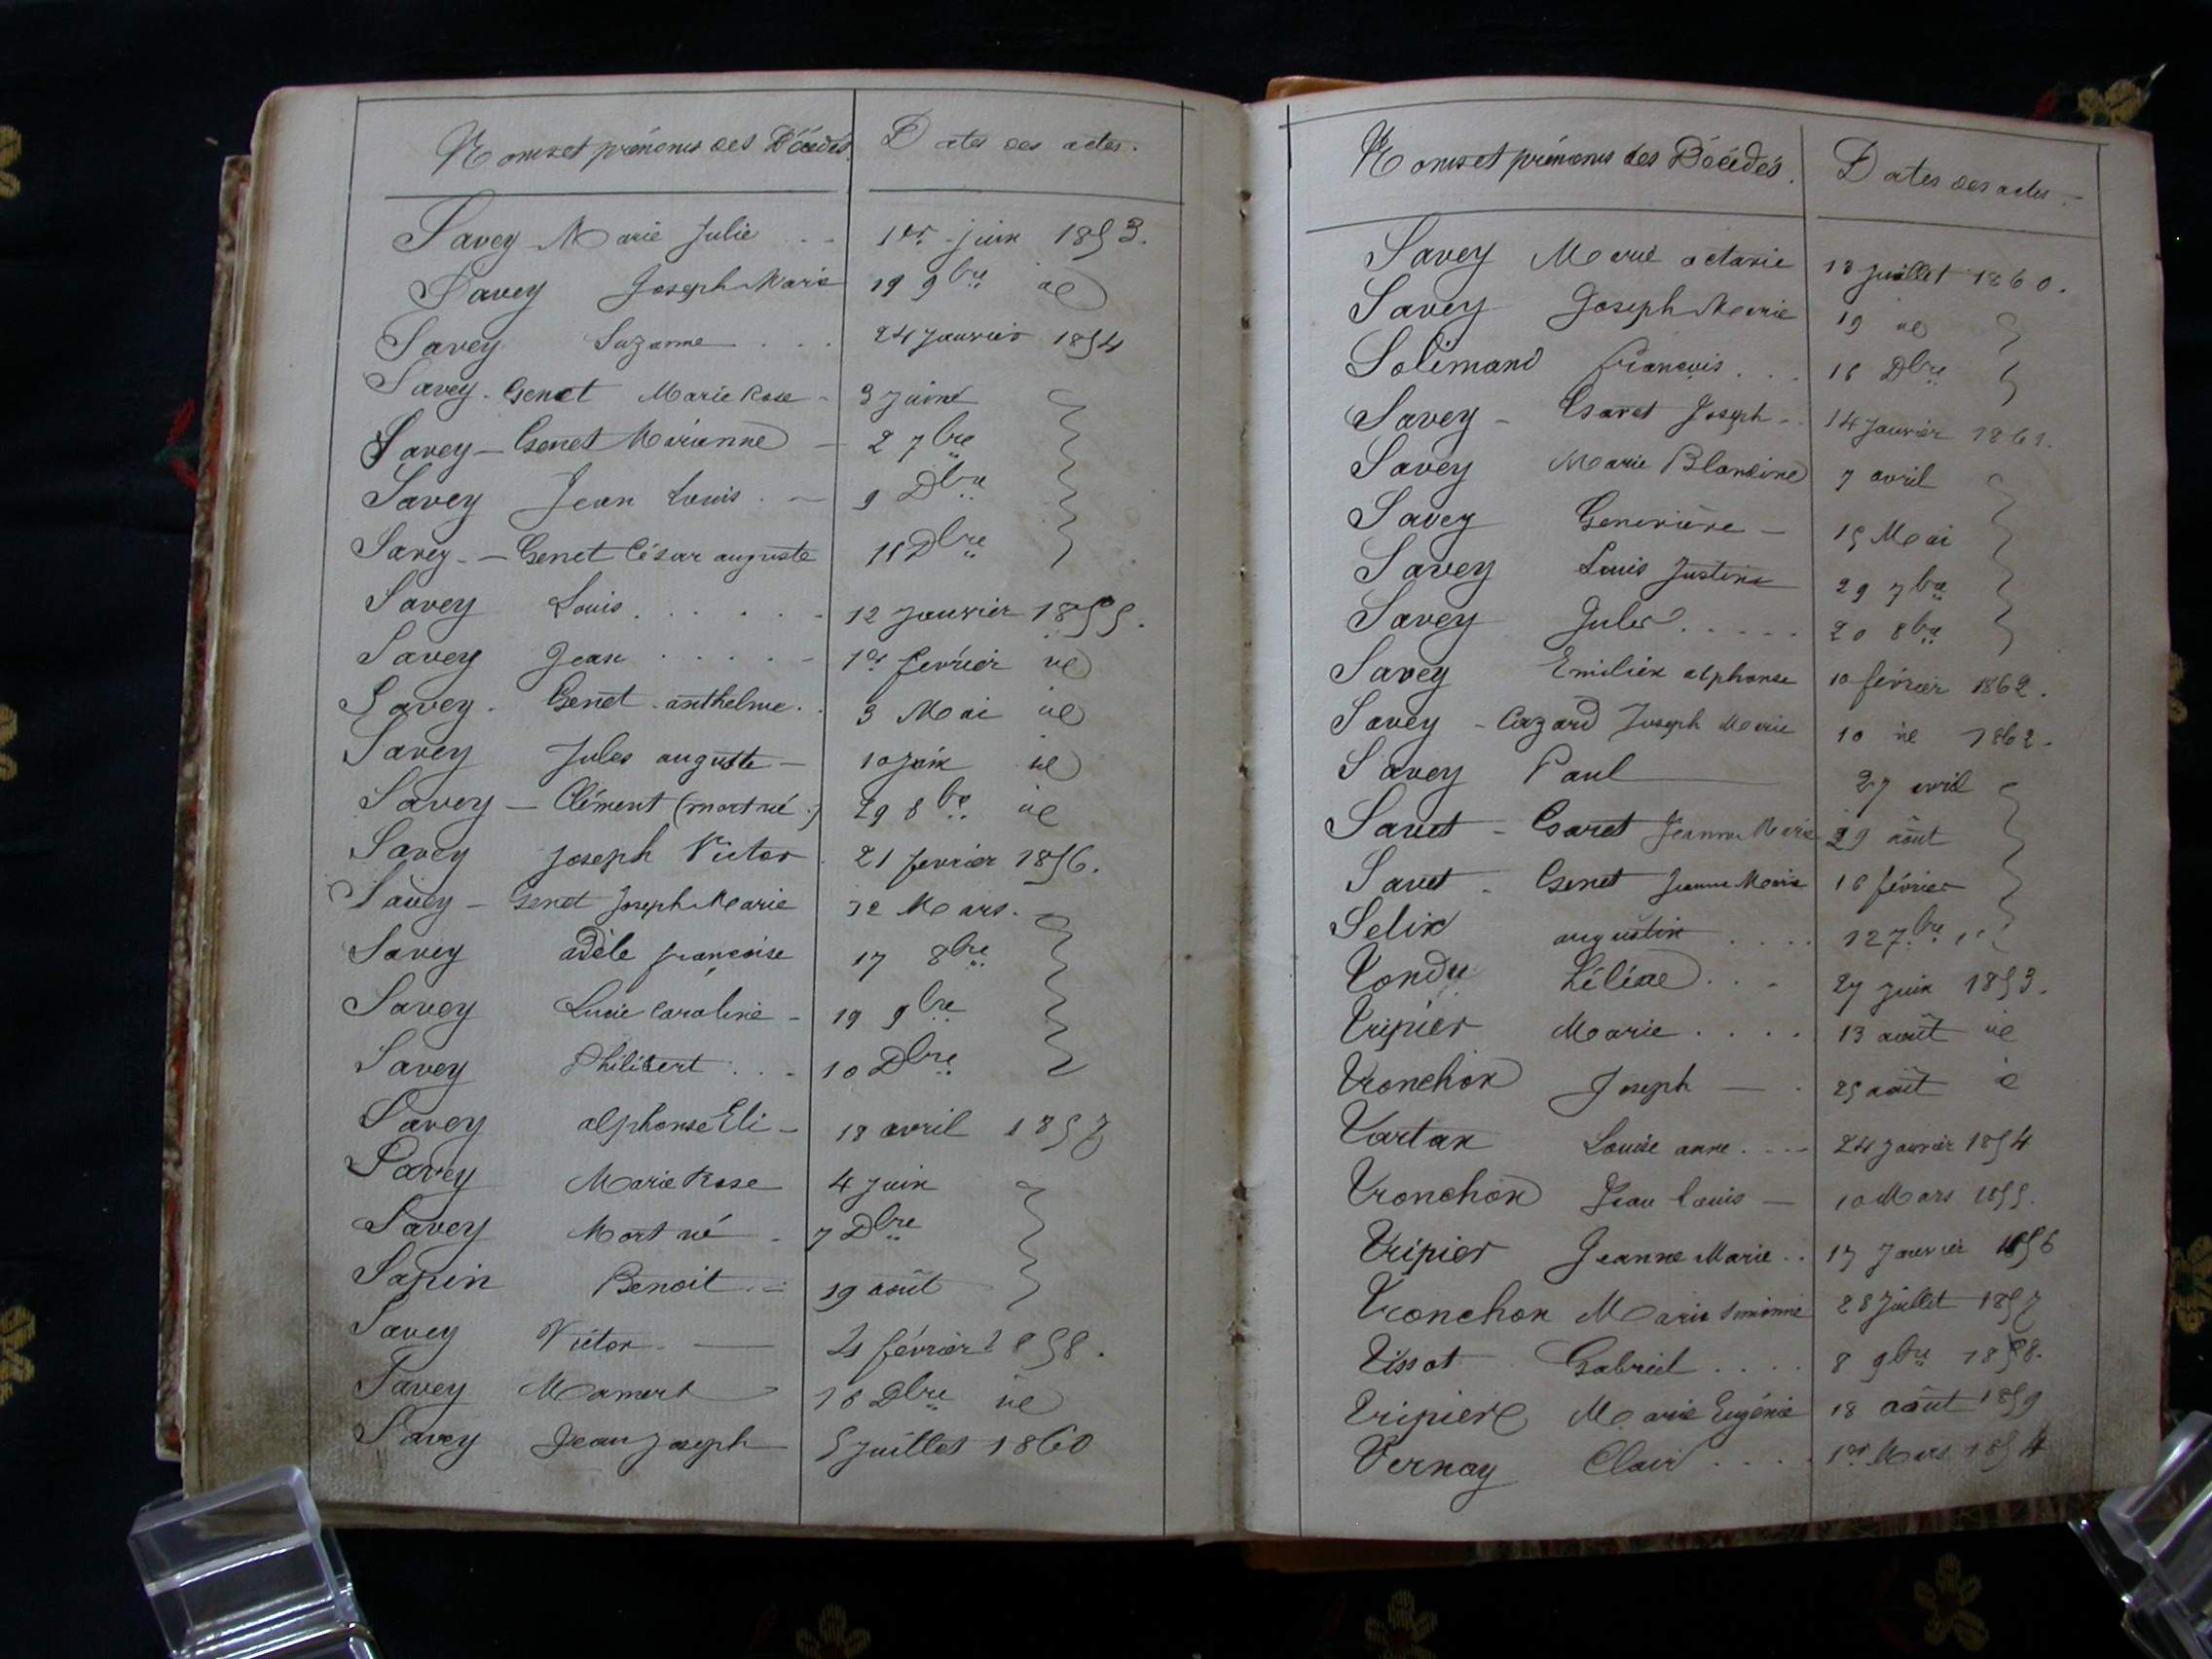 Noms et prénoms des Décédés. Dates des actes.
Savey Marie Julie . . 1er juin 1853.
Savey Joseph Marie 19 9bre id
Savey Suzanne . . . 24 Janvier 1854
Savey - Genet Marie Rose - 3 Juin
Savey - Genet Marianne - 2 7bre
Savey Jean Louis . - 9 Dbre
Savey - Genet César auguste 11 Dbre
Savey Louis . . . . . . 12 Janvier 1855.
Savey Jean . . . . . 1er février id
Savey - Genet anthelme . . 3 Mai id
Savey Jules auguste - 10 Juin id
Savey - Clément (mort né.) 29 8bre id
Savey Joseph Victor . 21 fevrier 1856.
Savey - Genet Joseph Marie Mars.
Savey adèle françoise 17 8bre
Savey Lucie Caroline - 19 9bre
Savey Philibert . . - 10 Dbre
Savey alphonse Eli - 18 avril 1857
Savey Marie Rose 4 Juin
Savey Mort né - 7 Dbre
Sapin Benoit 19 août
Savey Victor - février 1858.
Savey Mamert 16 Dbre id
Savey Jean Joseph 5 Juillet 1860
Noms et prénoms des Décédés. Dates des actes.
Savey Marie octavie 13 Juillet 1860.
Savey Joseph Marie 19 id
Solimand François . . . 16 Dbre
Savey - Garet Joseph - . 14 Janvier 1861.
Savey Marie Blandine 7 avril
Savey Geneviève - 15 Mai
Savey Louis Justine 29 7bre
Savey Jules . . . . . 20 8bre
Savey Emilien alphonse 10 février 1862.
Savey - Cazard Joseph Marie 10 id 1862.
Savey Paul 27 avril
Savet - Garet Jeanne Marie 29 août
Savet - Genet Jeanne Marie 16 février
Selix augustin . . . . 12 7bre
Tondu . . . 27 Juin 1853.
Tripier Marie . . . . 13 août id
Tronchon Joseph - . 25 août id
Tartax Louise anne . . . 24 Janvier 1854
Tronchon Jean Louis - 10 Mars 1855.
Tripier Jeanne Marie . . 17 Janvier 1856
Tronchon Marie 28 Juillet 1857
Tissot Gabriel . . . . 8 9bre 1858.
Tripier Marie Eugénie 18 août 1859
Vernay Clair . . . . 1er Mars 1854